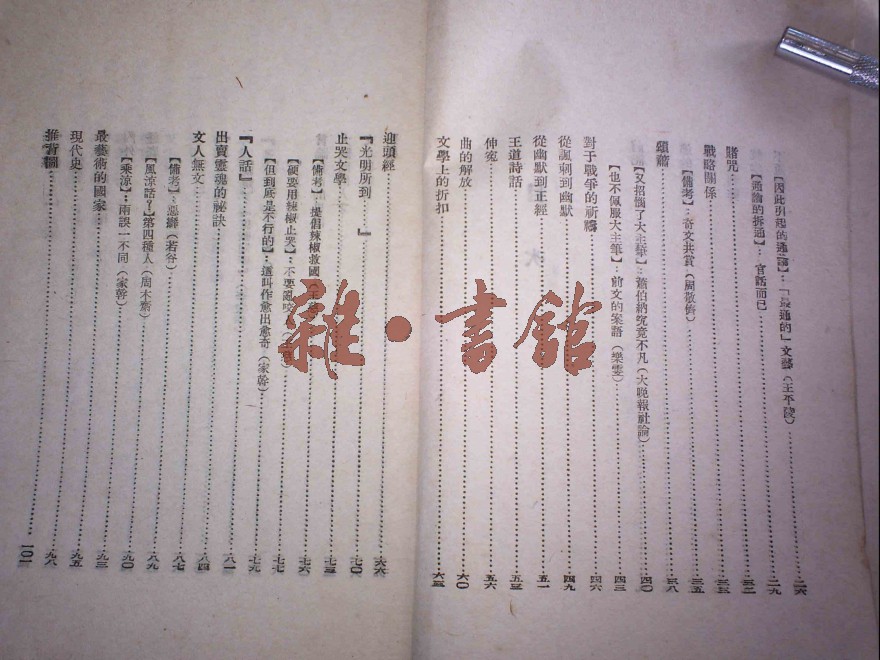 【因此引起的通論】:「最通的」文藝(王平陵)……二六
【通論的拆通】:官話而已……二九
賭咒……三二
戰略關係……三三
【備考】:奇文共賞(周敬儕)……三五
頌蕭……三八
【又招惱了大主筆】:蕭伯納究竟不凡(大晚報社論)……四〇
【也不佩服大主筆】:前文的案語(樂雯)……四三
對于戰爭的祈禱……四六
從諷刺到幽默……四九
從幽默到正經……五一
王道詩話……五三
伸寃……五六
曲的解放……六〇
文學上的折扣……六三
迎頭經……六六
『光明所到……』……七〇
止哭文學……七三
【備考】:提倡辣椒救國(王……七六
【硬要用辣椒止哭】:不要亂咬……七七
【但到底是不行的】:這叫作愈出愈奇(家幹)……七九
『人話』……八一
出賣靈魂的祕訣……八四
文人無文……八七
【備考】:惡癖(若谷)……八九
【風涼話?】第四種人(周木齋)……九〇
【乘涼】:兩誤一不同(家幹)……九三
最藝術的國家……九五
現代史……九八
推背圖……一〇一
雜·書館